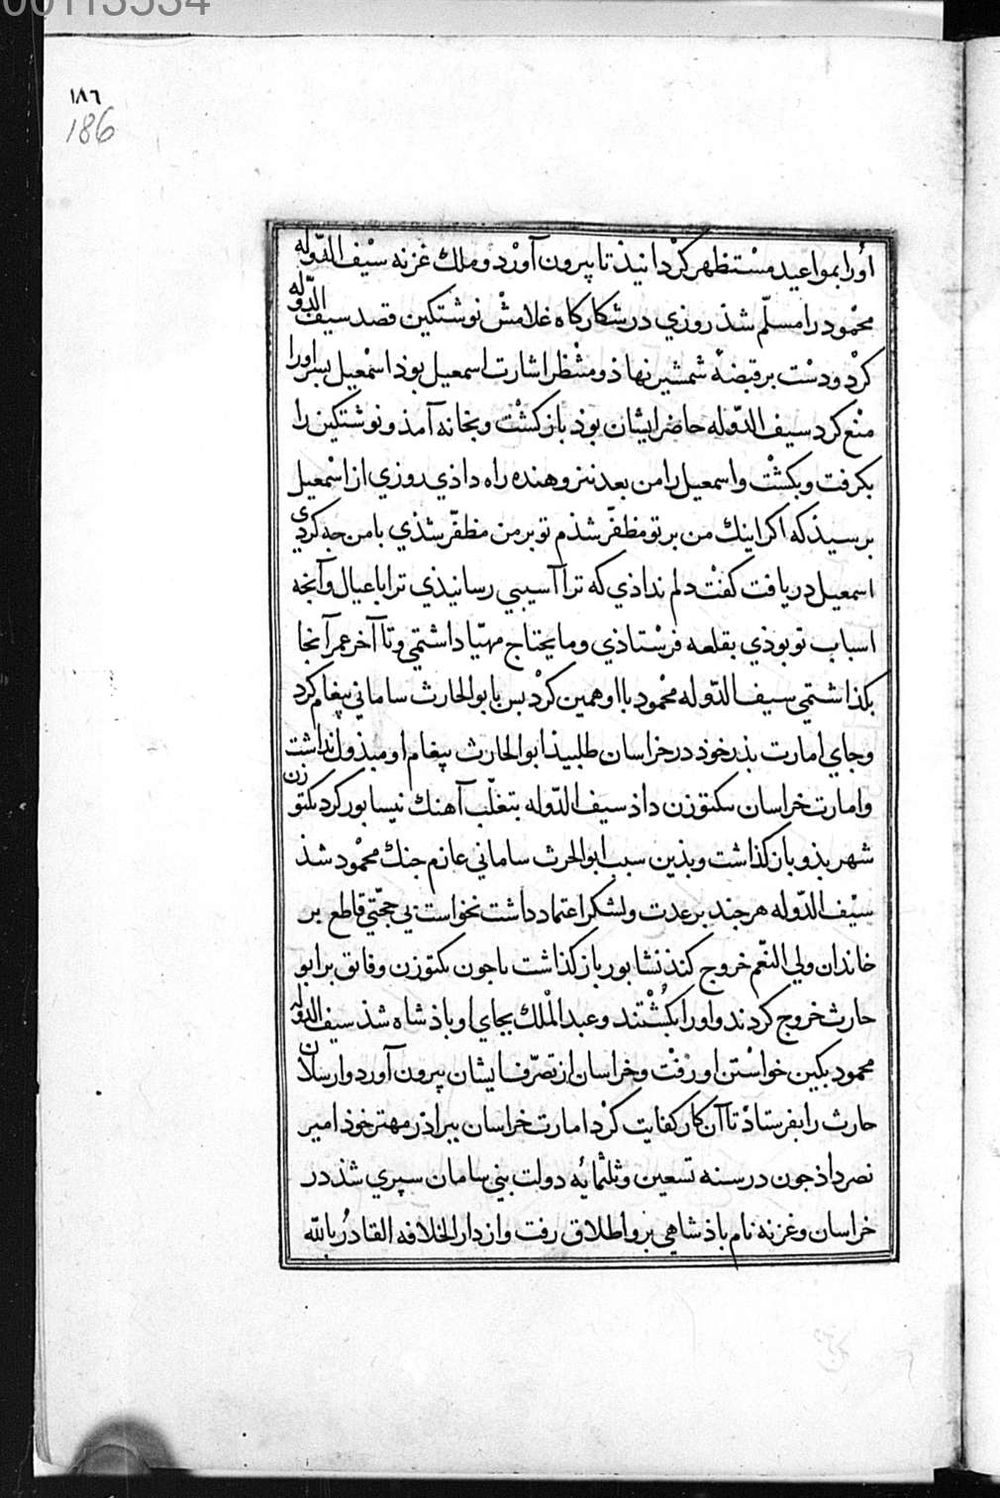 00113534
١٨٦
186
اورا بمواعيد مستظهر كردانيذ تا بيرون آورد و ملك غزنه سيف الدّوله
محمود را مسلّم شذ روزي در شكاركاه غلامش نوشتكين قصد سيف الدّوله
كرد و دست بر قبضهٔ شمشير نهاذ و منتظر اشارت اسمعيل بوذ اسمعيل بسر اورا
منع كرد سيف الدّوله حاضر ايشان بوذ باز كشت و بخانه آمذ و نوشتكين را
بكرفت و بكشت و اسمعيل را من بعد نزوهنده راه داذي روزي از اسمعيل
برسيذ كه اكر اينك من بر تو مظفّر شذم تو بر من مظفّر شذي با من جه كردي
اسمعيل دريافت كفت دلم نداذي كه ترا آسيبي رسانيذي ترا با عيال و آنجه
اسباب تو بوذي بقلعه فرستاذي و ما يحتاج مهيّا داشتمي و تا آخر عمر آنجا
بكذاشتمي سيف الدّوله محمود با او همين كرد بس با بو الحارث ساماني بيغام كرد
و جاي امارت بذر خوذ در خراسان طلبيذ ابو الحارث بيغام او مبذول نداشت
و امارت خراسان بكتوزن داذ سيف الدّوله بتغلّب آهنك نيسابور كرد بكتوزن
شهر بذو باز كذاشت و بذين سبب ابو الحرث ساماني عازم جنك محمود شذ
سيف الدّوله هر جند بر عدت و لشكر اعتماد داشت نخواست بي حجّتي قاطع بر
خاندان ولي النّعم خروج كند نشابور باز كذاشت تا جون بكتوزن و فايق بر ابو
حارث خروج كردند و اورا بكُشتند و عبد الملك بجاي او باذشاه شذ سيف الدوله
محمود بكين خواستن او رفت و خراسان از تصرّف ايشان بيرون آورد و ارسلان
حارث را بفرستاذ تا آن كار كفايت كرد امارت خراسان ببراذر مهتر خوذ امير
نصر داذ جون در سنه تسعين و ثلثمايه دولت بني سامان سپري شذ در
خراسان و غزنه نام باذشاهي برو اطلاق رفت و از دار الخلافه القادرُ بالله